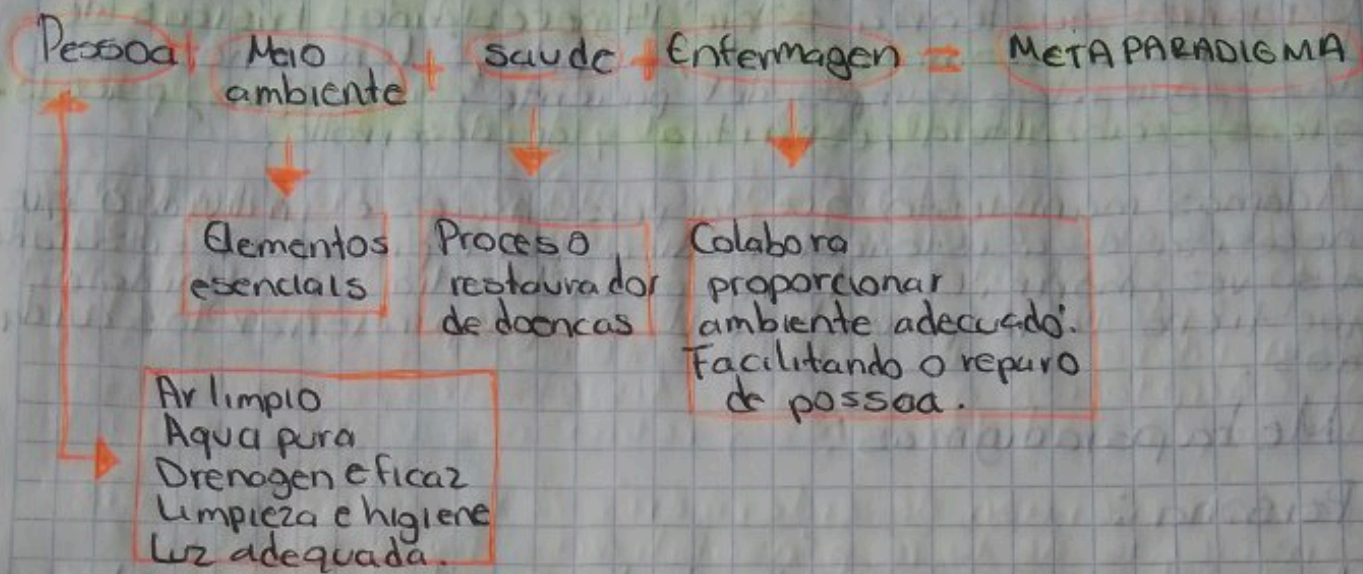 Pessoa + Meio ambiente + saude + Enfermagen = METAPARADIGMA
Elementos
esenciais
Proceso
restaurador
de doencas
Colabora
proporcionar
ambiente adecuado.
Facilitando o reparo
de possoa.
Ar limpio
Aqua pura
Drenagen eficaz
Limpieza e higiene
Luz adequada.